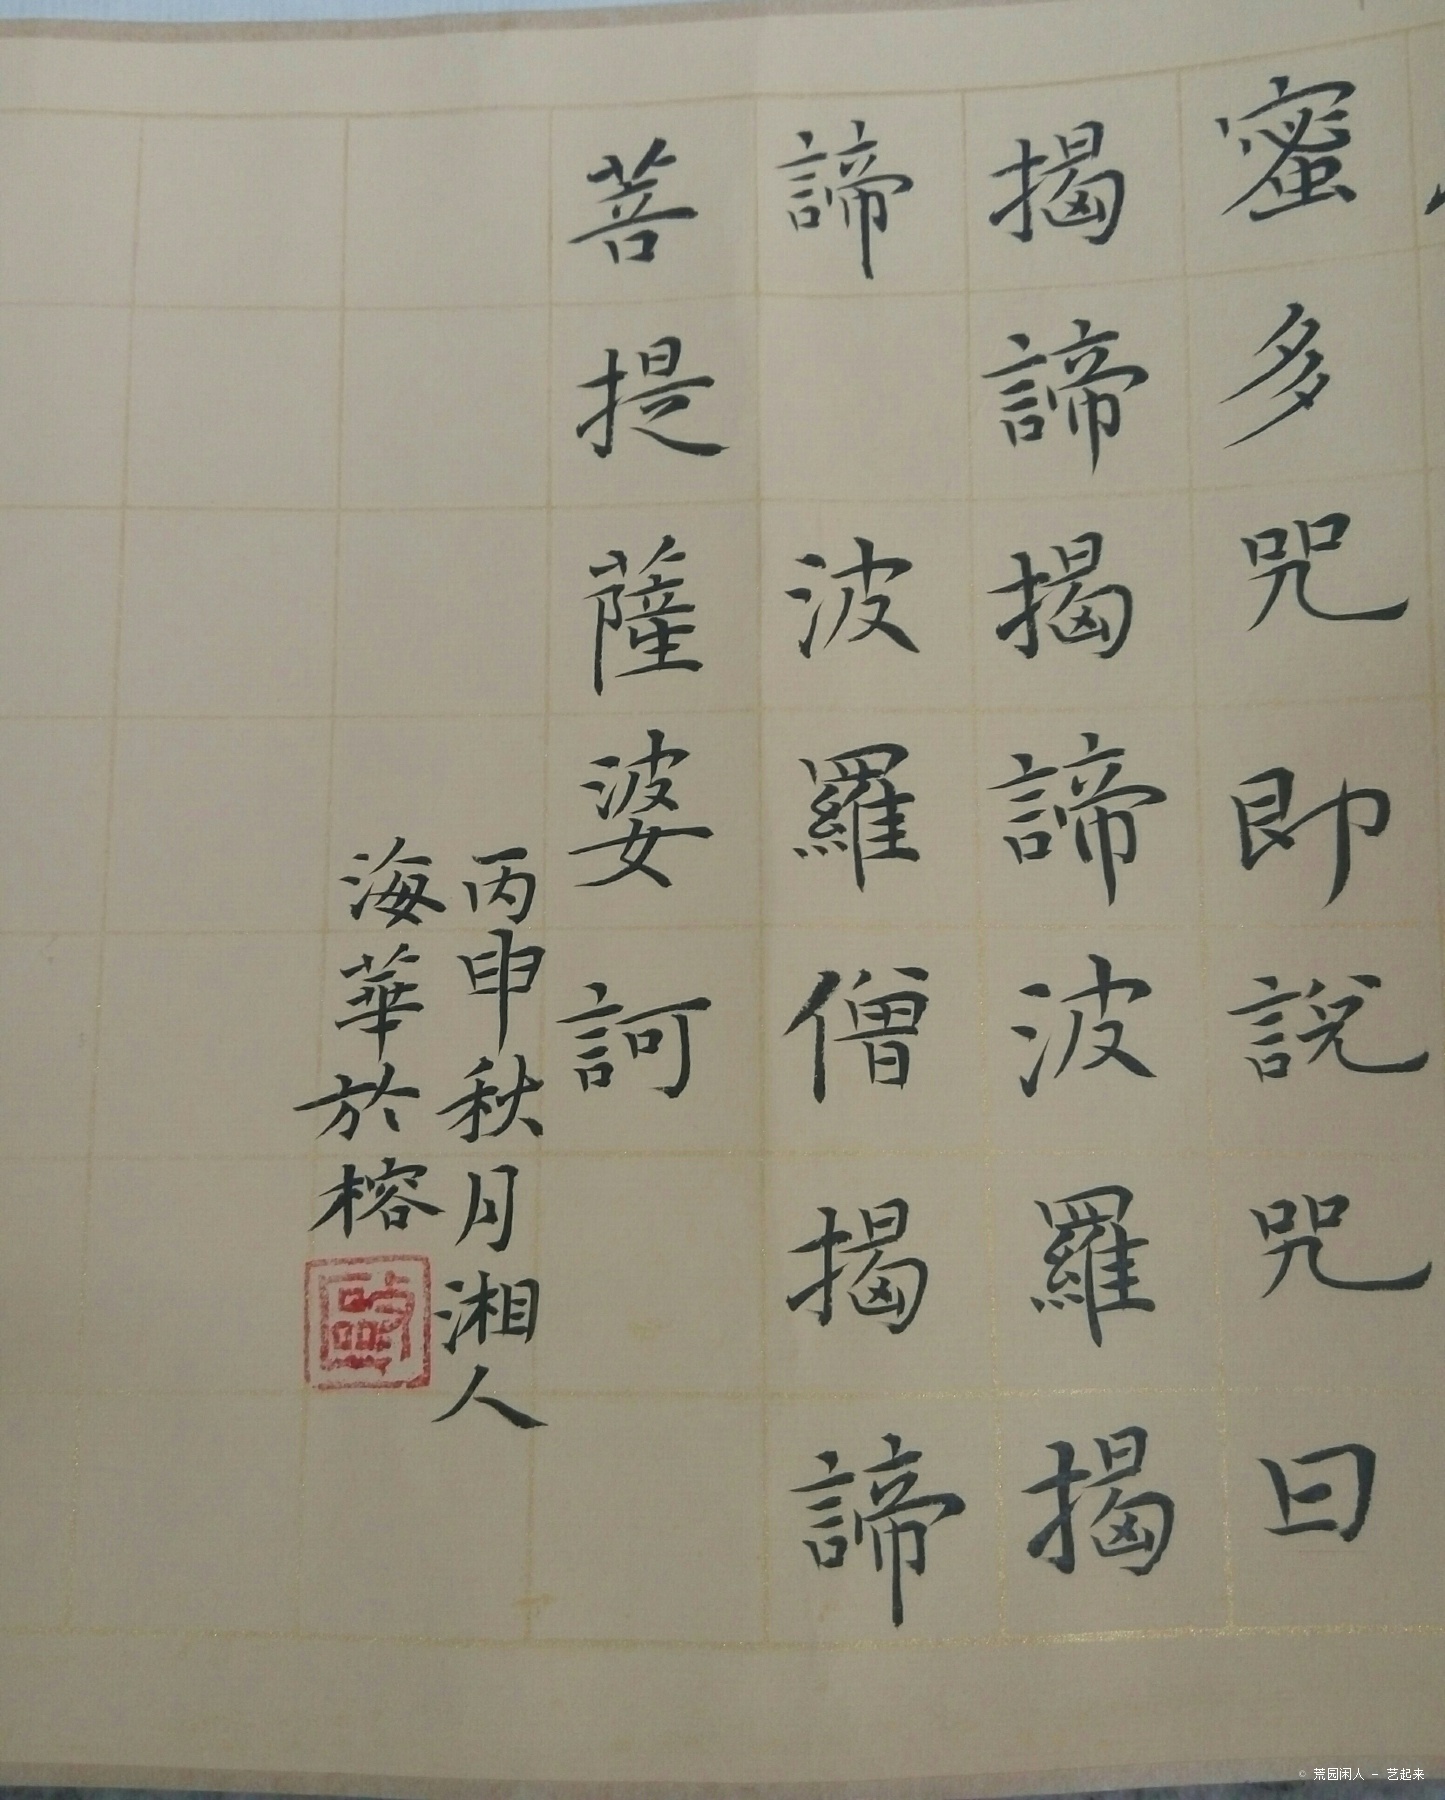 蜜多咒即說咒曰
揭諦揭諦波羅揭
諦 波羅僧揭諦
菩提薩婆訶
丙申秋月湘人
海華於榕
© 荒园闲人 - 艺起来